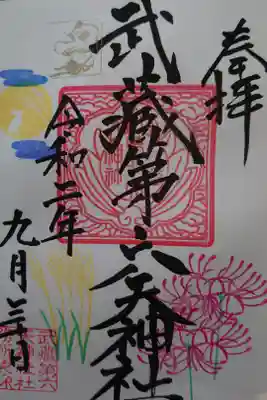 奉拝
武蔵第六天神社
令和二年
九月三日